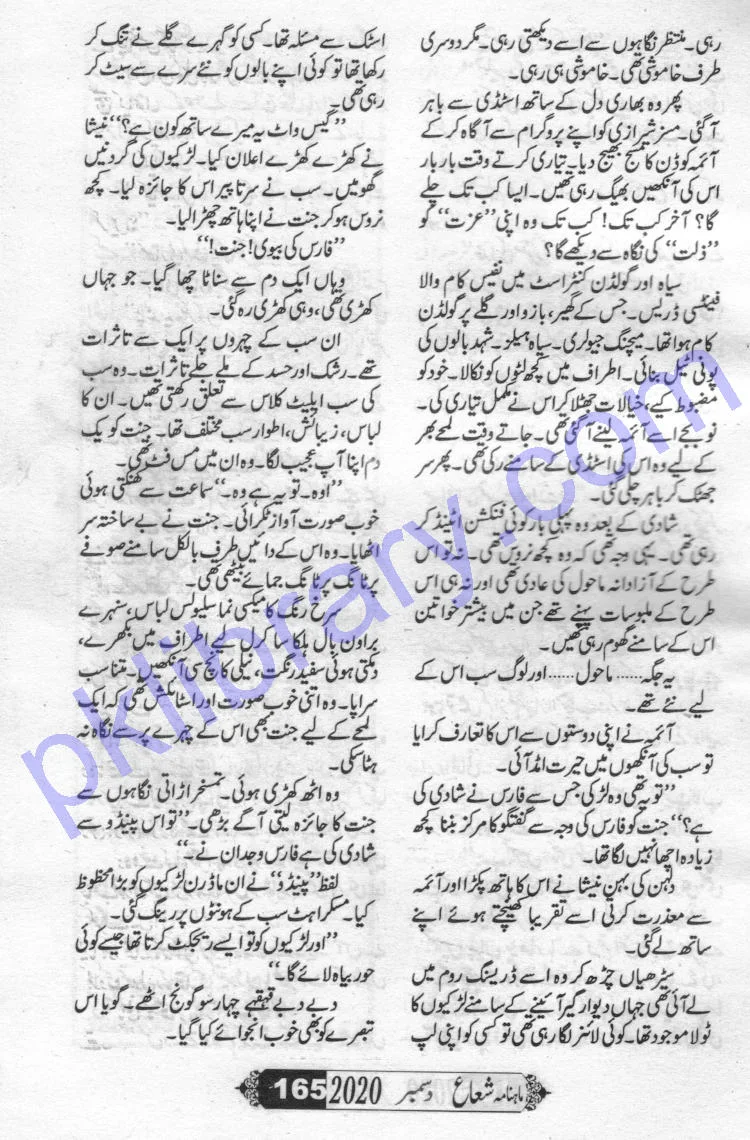 رہی۔ منتظر نگاہوں سے اسے دیکھتی رہی۔ مگر دوسری
طرف خاموشی تھی۔ خاموشی ہی رہی۔
پھر وہ بھاری دل کے ساتھ اسٹڈی سے باہر
آ گئی۔ مسز شیرازی کو اپنے پروگرام سے آگاہ کر کے
آئمہ کو ڈن کا میسج بھیج دیا۔ تیاری کرتے وقت بار بار
اس کی آنکھیں بھیگ رہی تھیں۔ ایسا کب تک چلے
گا؟ آخر کب تک! کب تک وہ اپنی ”عزت“ کو
”ذلت“ کی نگاہ سے دیکھے گا؟
سیاہ اور گولڈن کنٹراسٹ میں نفیس کام والا
فینٹسی ڈریس۔ جس کے گھیر، بازو اور گلے پر گولڈن
کام ہوا تھا۔ میچنگ جیولری۔ سیاہ ہیلز۔ شہد بالوں کی
پونی ٹیل بنائی۔ اطراف میں کچھ لٹوں کو نکالا۔ خود کو
مضبوط کیے، خیالات جھٹلا کر اس نے مکمل تیاری کی۔
نو بجے اسے آئمہ لینے آ گئی تھی۔ جاتے وقت لمحے بھر
کے لیے وہ اس کی اسٹڈی کے سامنے رکی تھی۔ پھر سر
جھٹک کر باہر چلی گئی۔
شادی کے بعد وہ پہلی بار کوئی فنکشن اٹینڈ کر
رہی تھی۔ یہی وجہ تھی کہ وہ کچھ نروس تھی۔ نہ تو اس
طرح کے آزادانہ ماحول کی عادی تھی اور نہ ہی اس
طرح کے ملبوسات پہنے تھے جن میں بیشتر خواتین
اس کے سامنے گھوم رہی تھیں۔
یہ جگہ...... ماحول...... اور لوگ سب اس کے
لیے نئے تھے۔
آئمہ نے اپنی دوستوں سے اس کا تعارف کرایا
تو سب کی آنکھوں میں حیرت امڈ آئی۔
”تو یہ تھی وہ لڑکی جس سے فارس نے شادی کی
ہے؟“ جنت کو فارس کی وجہ سے گفتگو کا مرکز بننا کچھ
زیادہ اچھا نہیں لگا تھا۔
دلہن کی بہن نیشا نے اس کا ہاتھ پکڑا اور آئمہ
سے معذرت کرتی اسے تقریباً کھینچتے ہوئے اپنے
ساتھ لے گئی۔
سیڑھیاں چڑھ کر وہ اسے ڈریسنگ روم میں
لے آئی تھی جہاں دیوار گیر آئینے کے سامنے لڑکیوں کا
ٹولا موجود تھا۔ کوئی لائنر لگا رہی تھی تو کسی کو اپنی لپ
اسٹک سے مسئلہ تھا۔ کسی کو گہرے گلے نے تنگ کر
رکھا تھا تو کوئی اپنے بالوں کو نئے سرے سے سیٹ کر
رہی تھی۔
”گیس واٹ یہ میرے ساتھ کون ہے؟“ نیشا
نے کھڑے کھڑے اعلان کیا۔ لڑکیوں کی گردنیں
گھومیں۔ سب نے سرتا پیر اس کا جائزہ لیا۔ کچھ
نروس ہو کر جنت نے اپنا ہاتھ چھڑا لیا۔
”فارس کی بیوی! جنت!“
وہاں ایک دم سے سناٹا چھا گیا۔ جو جہاں
کھڑی تھی، وہی کھڑی رہ گئی۔
ان سب کے چہروں پر ایک سے تاثرات
تھے۔ رشک اور حسد کے ملے جلے تاثرات۔ وہ سب
کی سب ایلیٹ کلاس سے تعلق رکھتی تھیں۔ ان کا
لباس، زیبائش، اطوار سب مختلف تھا۔ جنت کو یک
دم اپنا آپ عجیب لگا۔ وہ ان میں مس فٹ تھی۔
”اوہ۔ تو یہ ہے وہ۔“ سماعت سے کھنکتی ہوئی
خوب صورت آواز ٹکرائی۔ جنت نے بے ساختہ سر
اٹھایا۔ وہ اس کے دائیں طرف بالکل سامنے صوفے
پر ٹانگ پر ٹانگ جمائے بیٹھی تھی۔
سرخ رنگ کا میکسی نما سلیولس لباس، سنہرے
براؤن بال ہلکا سا کرل لیے اطراف میں بکھرے،
دمکتی ہوئی سفید رنگت، نیلی کانچ سی آنکھیں۔ متناسب
سراپا۔ وہ اتنی خوب صورت اور اسٹائلش تھی کہ ایک
لمحے کے لیے جنت بھی اس کے چہرے پر سے نگاہ نہ
ہٹا سکی۔
وہ اٹھ کھڑی ہوئی۔ تمسخر اڑاتی نگاہوں سے
جنت کا جائزہ لیتی آگے بڑھی۔ ”تو اس پینڈو سے
شادی کی ہے فارس وجدان نے۔“
لفظ ”پینڈو“ نے ان ماڈرن لڑکیوں کو بڑا محظوظ
کیا۔ مسکراہٹ سب کے ہونٹوں پر رینگ گئی۔
”اور لڑکیوں کو تو ایسے ریجکٹ کرتا تھا جیسے کوئی
حور بیاہ لائے گا۔“
دبے دبے قہقہے چہار سو گونج اٹھے۔ گویا اس
تبصرے کو بھی خوب انجوائے کیا گیا۔
ماہنامہ شعاع دسمبر 2020 165
pklibrary.com